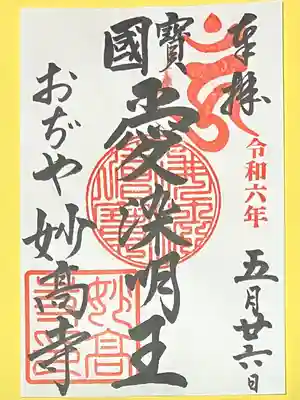 奉拝
令和六年
五月廿六日
國寶
愛染明王
おぢや妙高寺